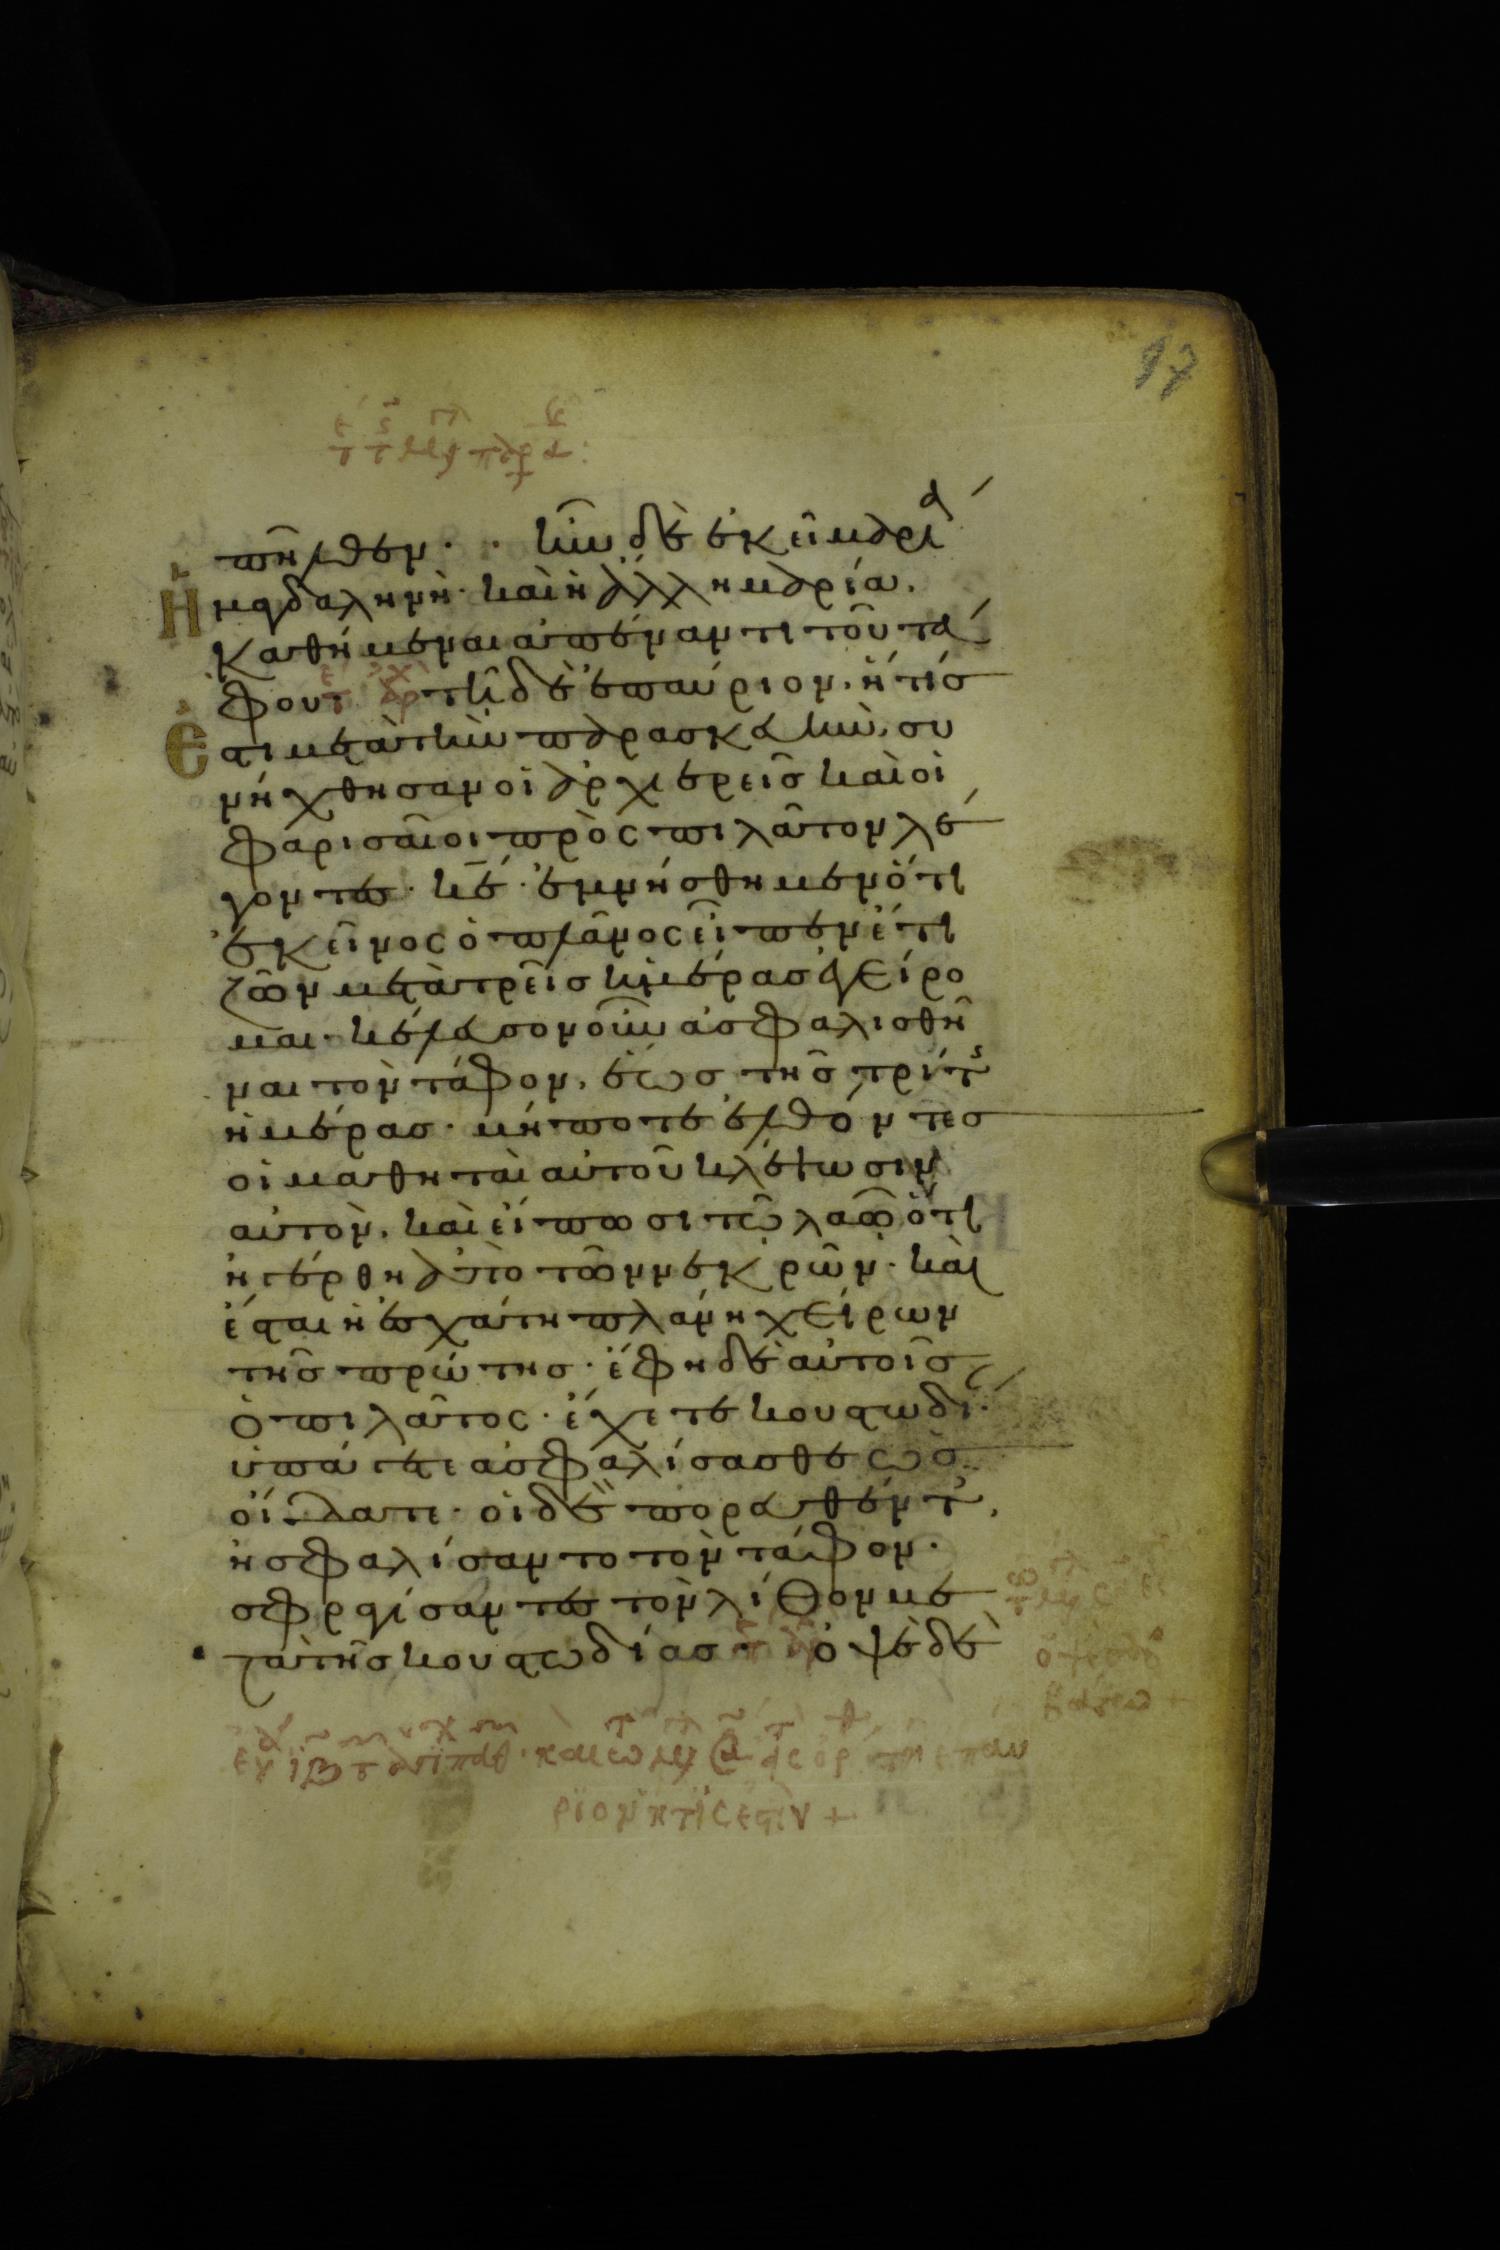 97
πῆλθεν· · ἦν δὲ ἐκεῖ μαρία
μαγδαληνὴ· καὶ ἡ ἄλλη μαρία,
Καθήμεναι ἀπέναντι τοῦ τά
φου τῆ δὲ ἐπαύριον, ἥτίσ
Ἐστι μετὰ τὴν παρασκευὴν, συ
νήχθησαν οἱ ἀρχιερεῖσ καὶ οἱ
φαρισαῖοι πρὸς πιλᾶτον λέ
γοντες· κε· ἐμνήσθημεν ὅτι
ἐκεῖνος ὁ πλάνος εἶπεν ἔτι
ζῶν μετὰ τρεῖσ ἡμέρασ ἐγείρο
μαι· κέλευσον οὖν ἀσφαλισθῆ
ναι τὸν τάφον, ἕωσ τῆσ τρίτης
ἡμέρασ· μήποτε ἐλθόντεσ
οἱ μαθηταὶ αὐτοῦ κλέψωσιν
αὐτὸν, καὶ εἴπωσι τῶ λαῶ ὅτι
ἠγέρθη ἀπὸ τῶν νεκρῶν· καὶ
ἔσται ἡ ἐσχάτη πλάνη χείρων
τῆσ πρώτησ· ἔφη δὲ αὐτοῖσ
ὁ πιλᾶτος· ἔχετε κουστωδί
ὑπάγετε ἀσφαλίσασθε ὡσ
οἴδατε· οἱ δὲ πορευθέντες,
ἠσφαλίσαντο τὸν τάφον·
σφραγίσαντες τὸν λίθον με
τὰ τῆσ κουστωδίασ· ὀψὲ δὲ
ριον ητισ εστιν +